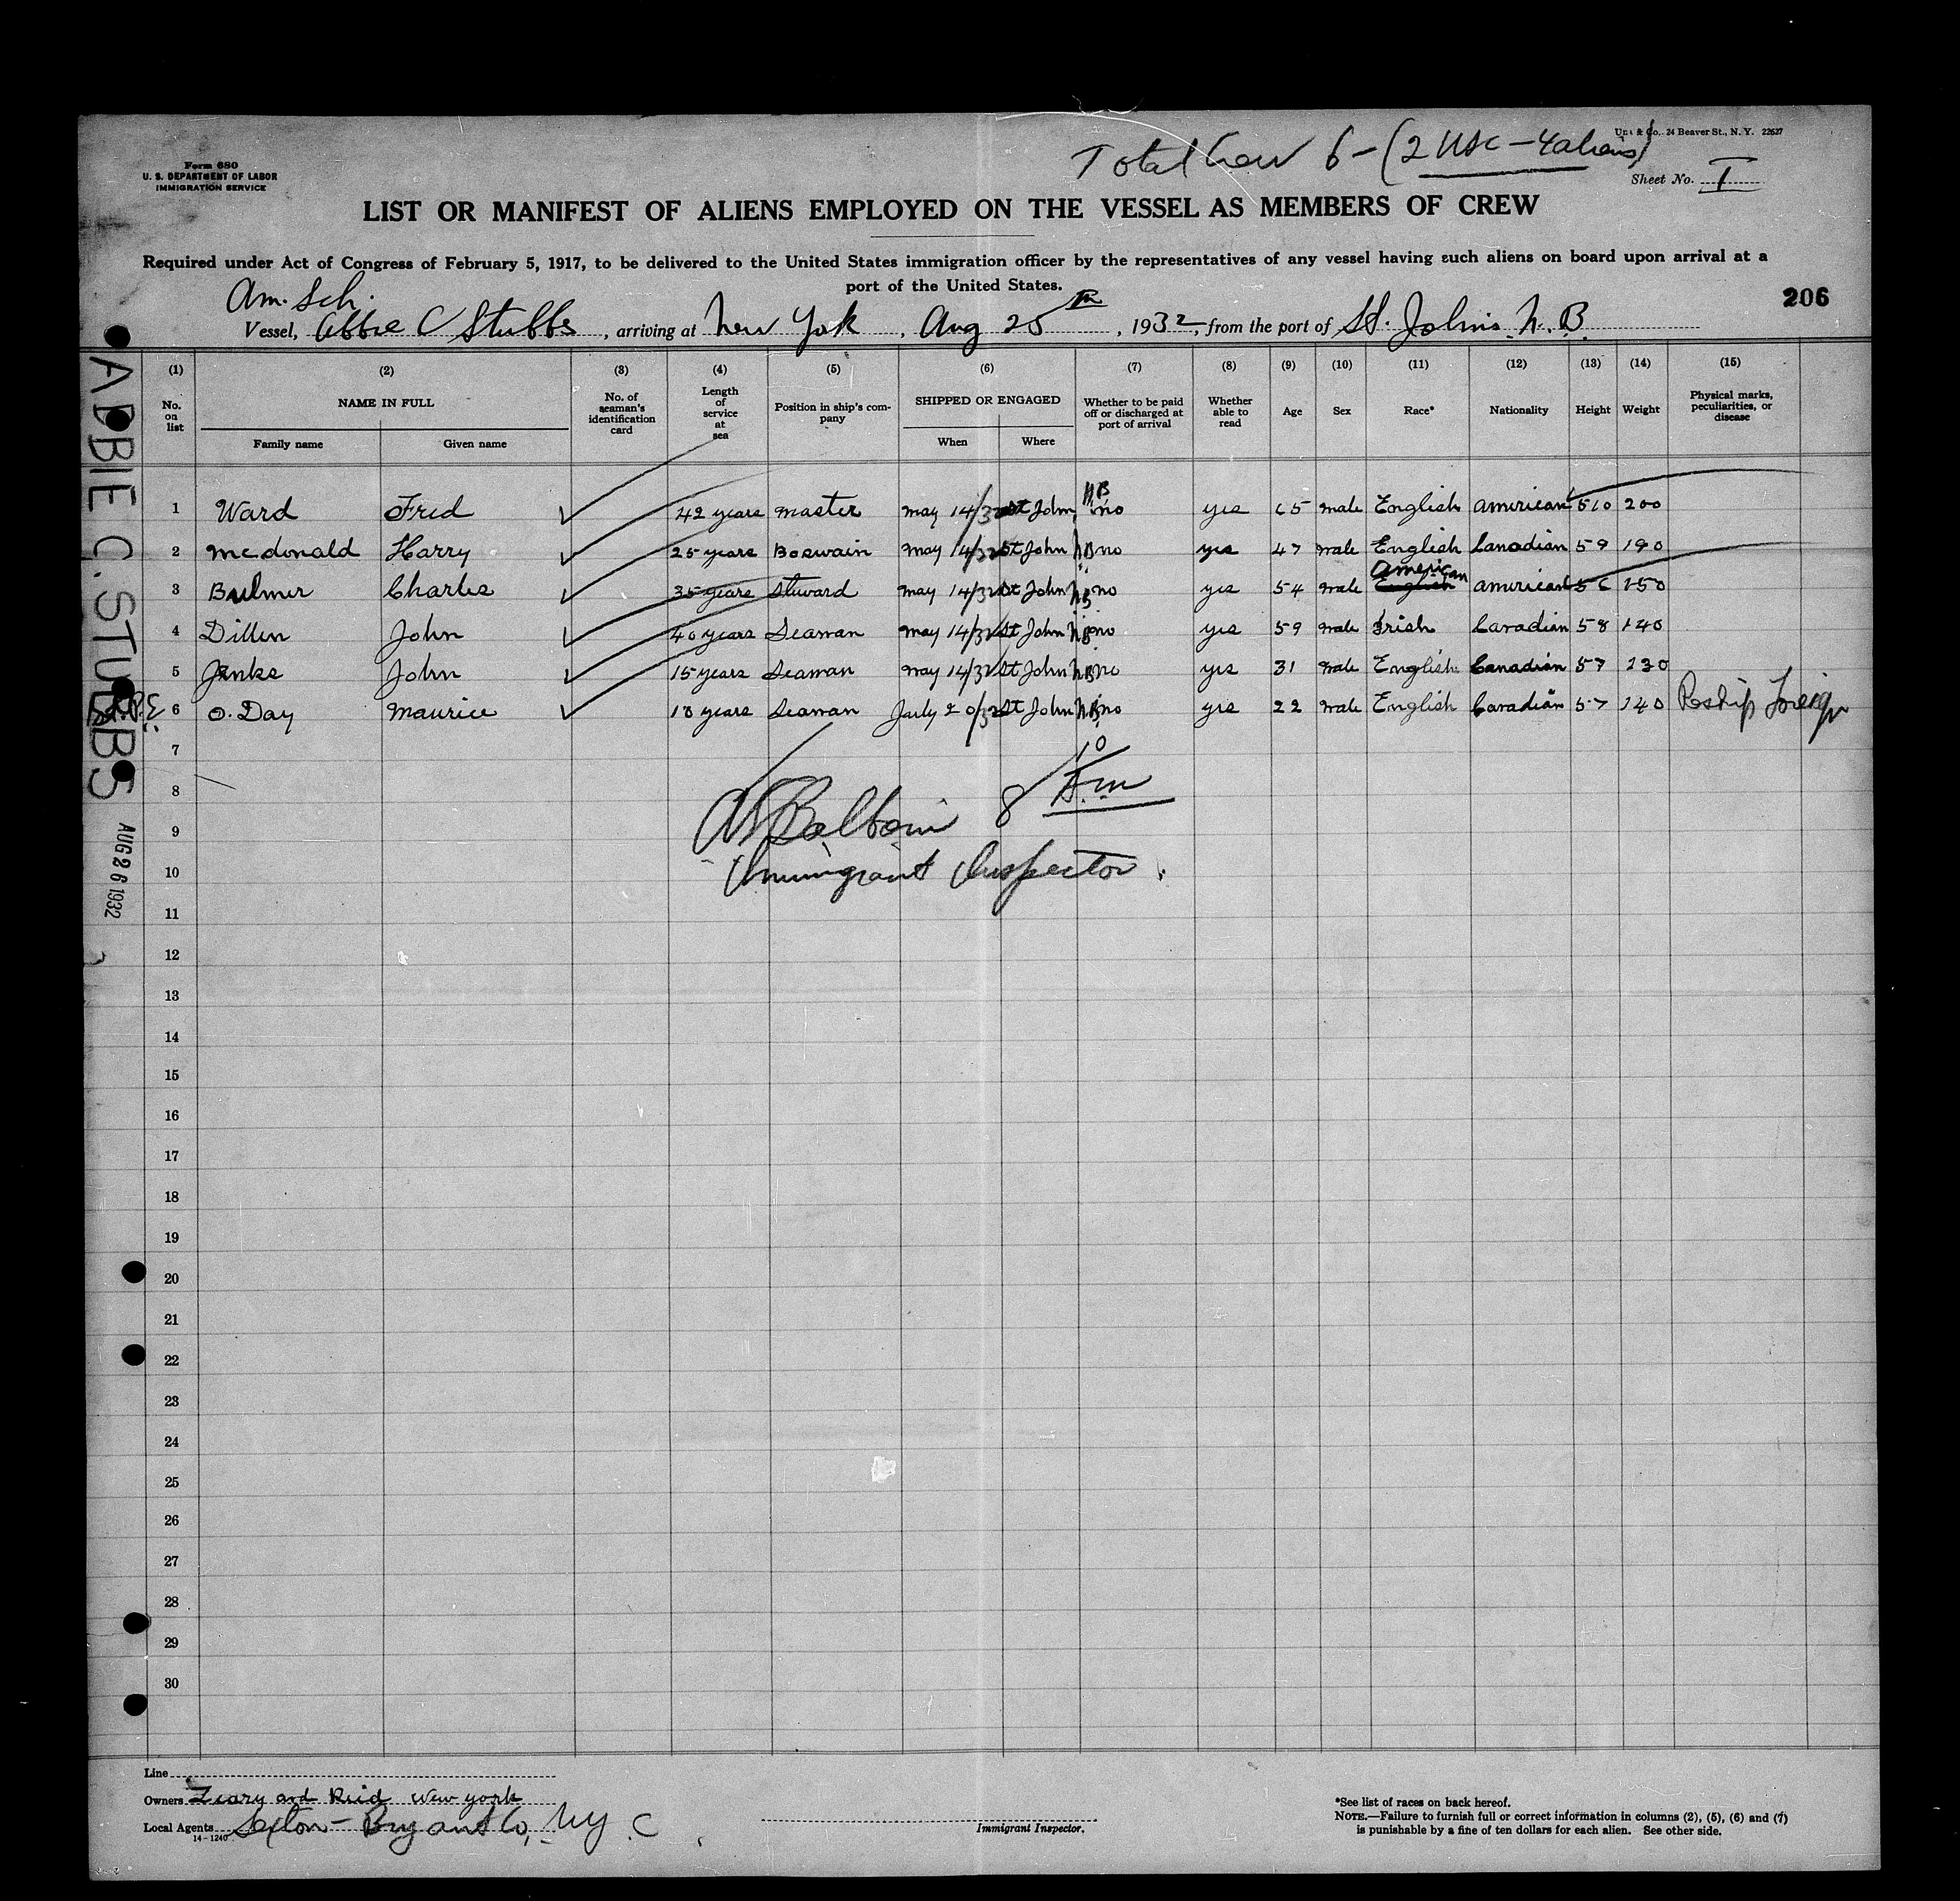 Form 680
U. S. DEPARTMENT OF LABOR
IMMIGRATION SERVICE
Total Crew 6 - (2 USC - 4 aliens)
& Co. 24 Beaver St., N. Y. 22627
Sheet No. I
LIST OR MANIFEST OF ALIENS EMPLOYED ON THE VESSEL AS MEMBERS OF CREW
Required under Act of Congress of February 5, 1917, to be delivered to the United States immigration officer by the representatives of any vessel having such aliens on board upon arrival at a
port of the United States.
206
Am. Sch.
Vessel, Abbie C Stubbs, arriving at New York, Aug 25th, 1932, from the port of St. John's N. B.
(1) (2) (3) (4) (5) (6) (7) (8) (9) (10) (11) (12) (13) (14) (15)
No. on list
NAME IN FULL
Family name Given name
No. of seaman's identification card
Length of service at sea
Position in ship's company
SHIPPED OR ENGAGED
When Where
Whether to be paid off or discharged at port of arrival
Whether able to read
Age
Sex
Race*
Nationality
Height
Weight
Physical marks, peculiarities, or disease
1 Ward Fred 42 years master May 14/32 St John NB no yes 65 male English American 5 10 200
2 McDonald Harry 25 years Boswain May 14/32 St John NB no yes 47 male English Canadian 5 9 190
3 Bulmer Charles 35 years Steward May 14/32 St John NB no yes 54 male English American American 5 6 150
4 Dillen John 40 years Seaman May 14/32 St John NB no yes 59 male Irish Canadian 5 8 140
5 Jenks John 15 years Seaman May 14/32 St John NB no yes 31 male English Canadian 5 7 130
6 O. Day Maurice 10 years Seaman July 20/32 St John NB no yes 22 male English Canadian 5 7 140 Reship Foreign
7
8
9
10
11
12
13
14
15
16
17
18
19
20
21
22
23
24
25
26
27
28
29
30
Immigrant Inspector.
ABBIE C. STUBBS
AUG 26 1932
Line
Owners Leary and Reid New York
Local Agents Sexton - Bryant Co, NY. C
14-1240
Immigrant Inspector.
*See list of races on back hereof.
NOTE.—Failure to furnish full or correct information in columns (2), (5), (6) and (7)
is punishable by a fine of ten dollars for each alien. See other side.